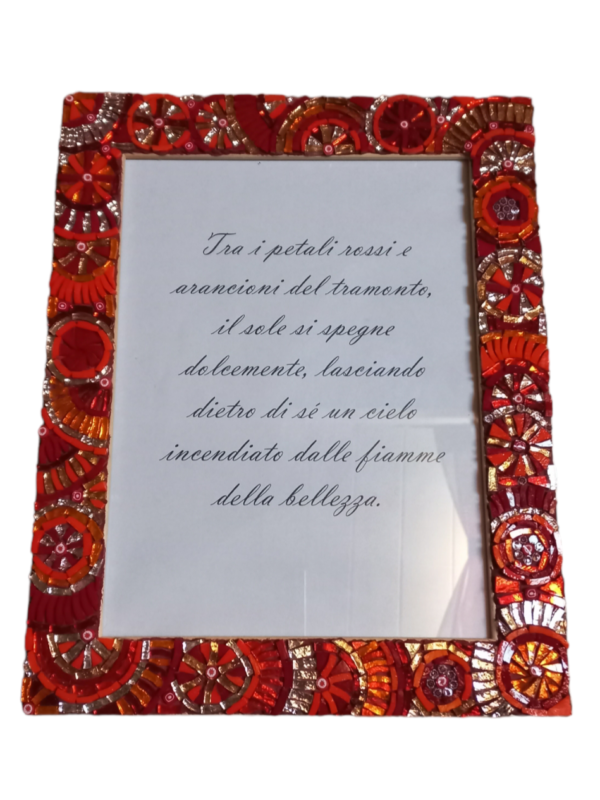 Tra i petali rossi e
arancioni del tramonto,
il sole si spegne
dolcemente, lasciando
dietro di sé un cielo
incendiato dalle fiamme
della bellezza.